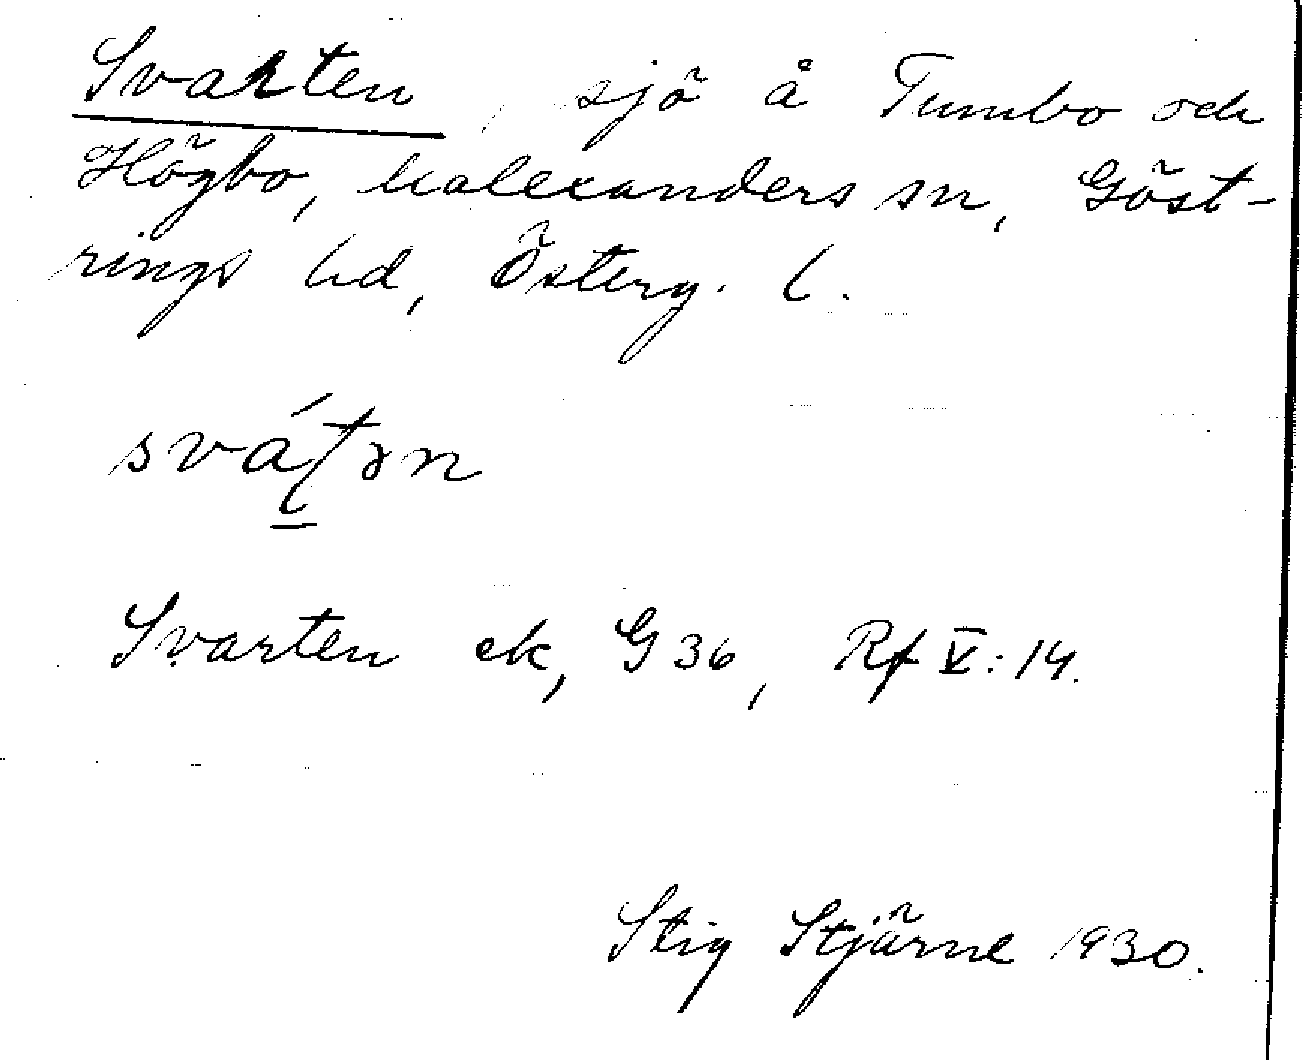 Svarten, sjö å Tumbo och
Högbo, Malexanders sn, Göst-
rings hd, Österg. l.
sváţən
Svarten ek, G 36, Rf V: 14.
Stig Stjärne 1930.